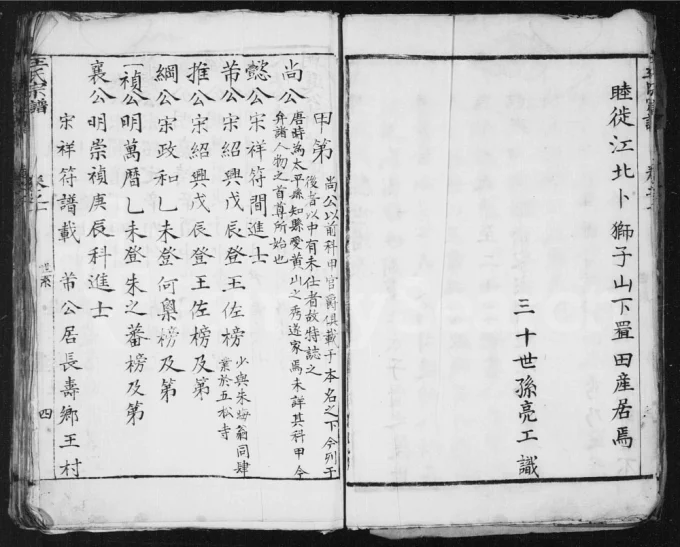 睦徙江北卜獅子山下置田產居焉
三十世孫亮工識
甲第
尚公以前科甲官爵俱載于本名之下今列于
後者以中有未仕者故特誌之
尚公
唐時為太平縣知縣愛黃山之秀遂家焉未詳其科甲今
弁諸人物之首尊所始也
懿公宋祥符間進士
芾公宋紹興戊辰登王佐榜
少與朱晦翁同肆
業於五松寺
推公宋紹興戊辰登王佐榜及第
綱公宋政和乙未登何㮚榜及第
禎公明萬曆乙未登朱之蕃榜及第
襄公明崇禎庚辰科進士
宋祥符譜載 芾公居長壽鄉王村
王氏宗譜
卷之一
四